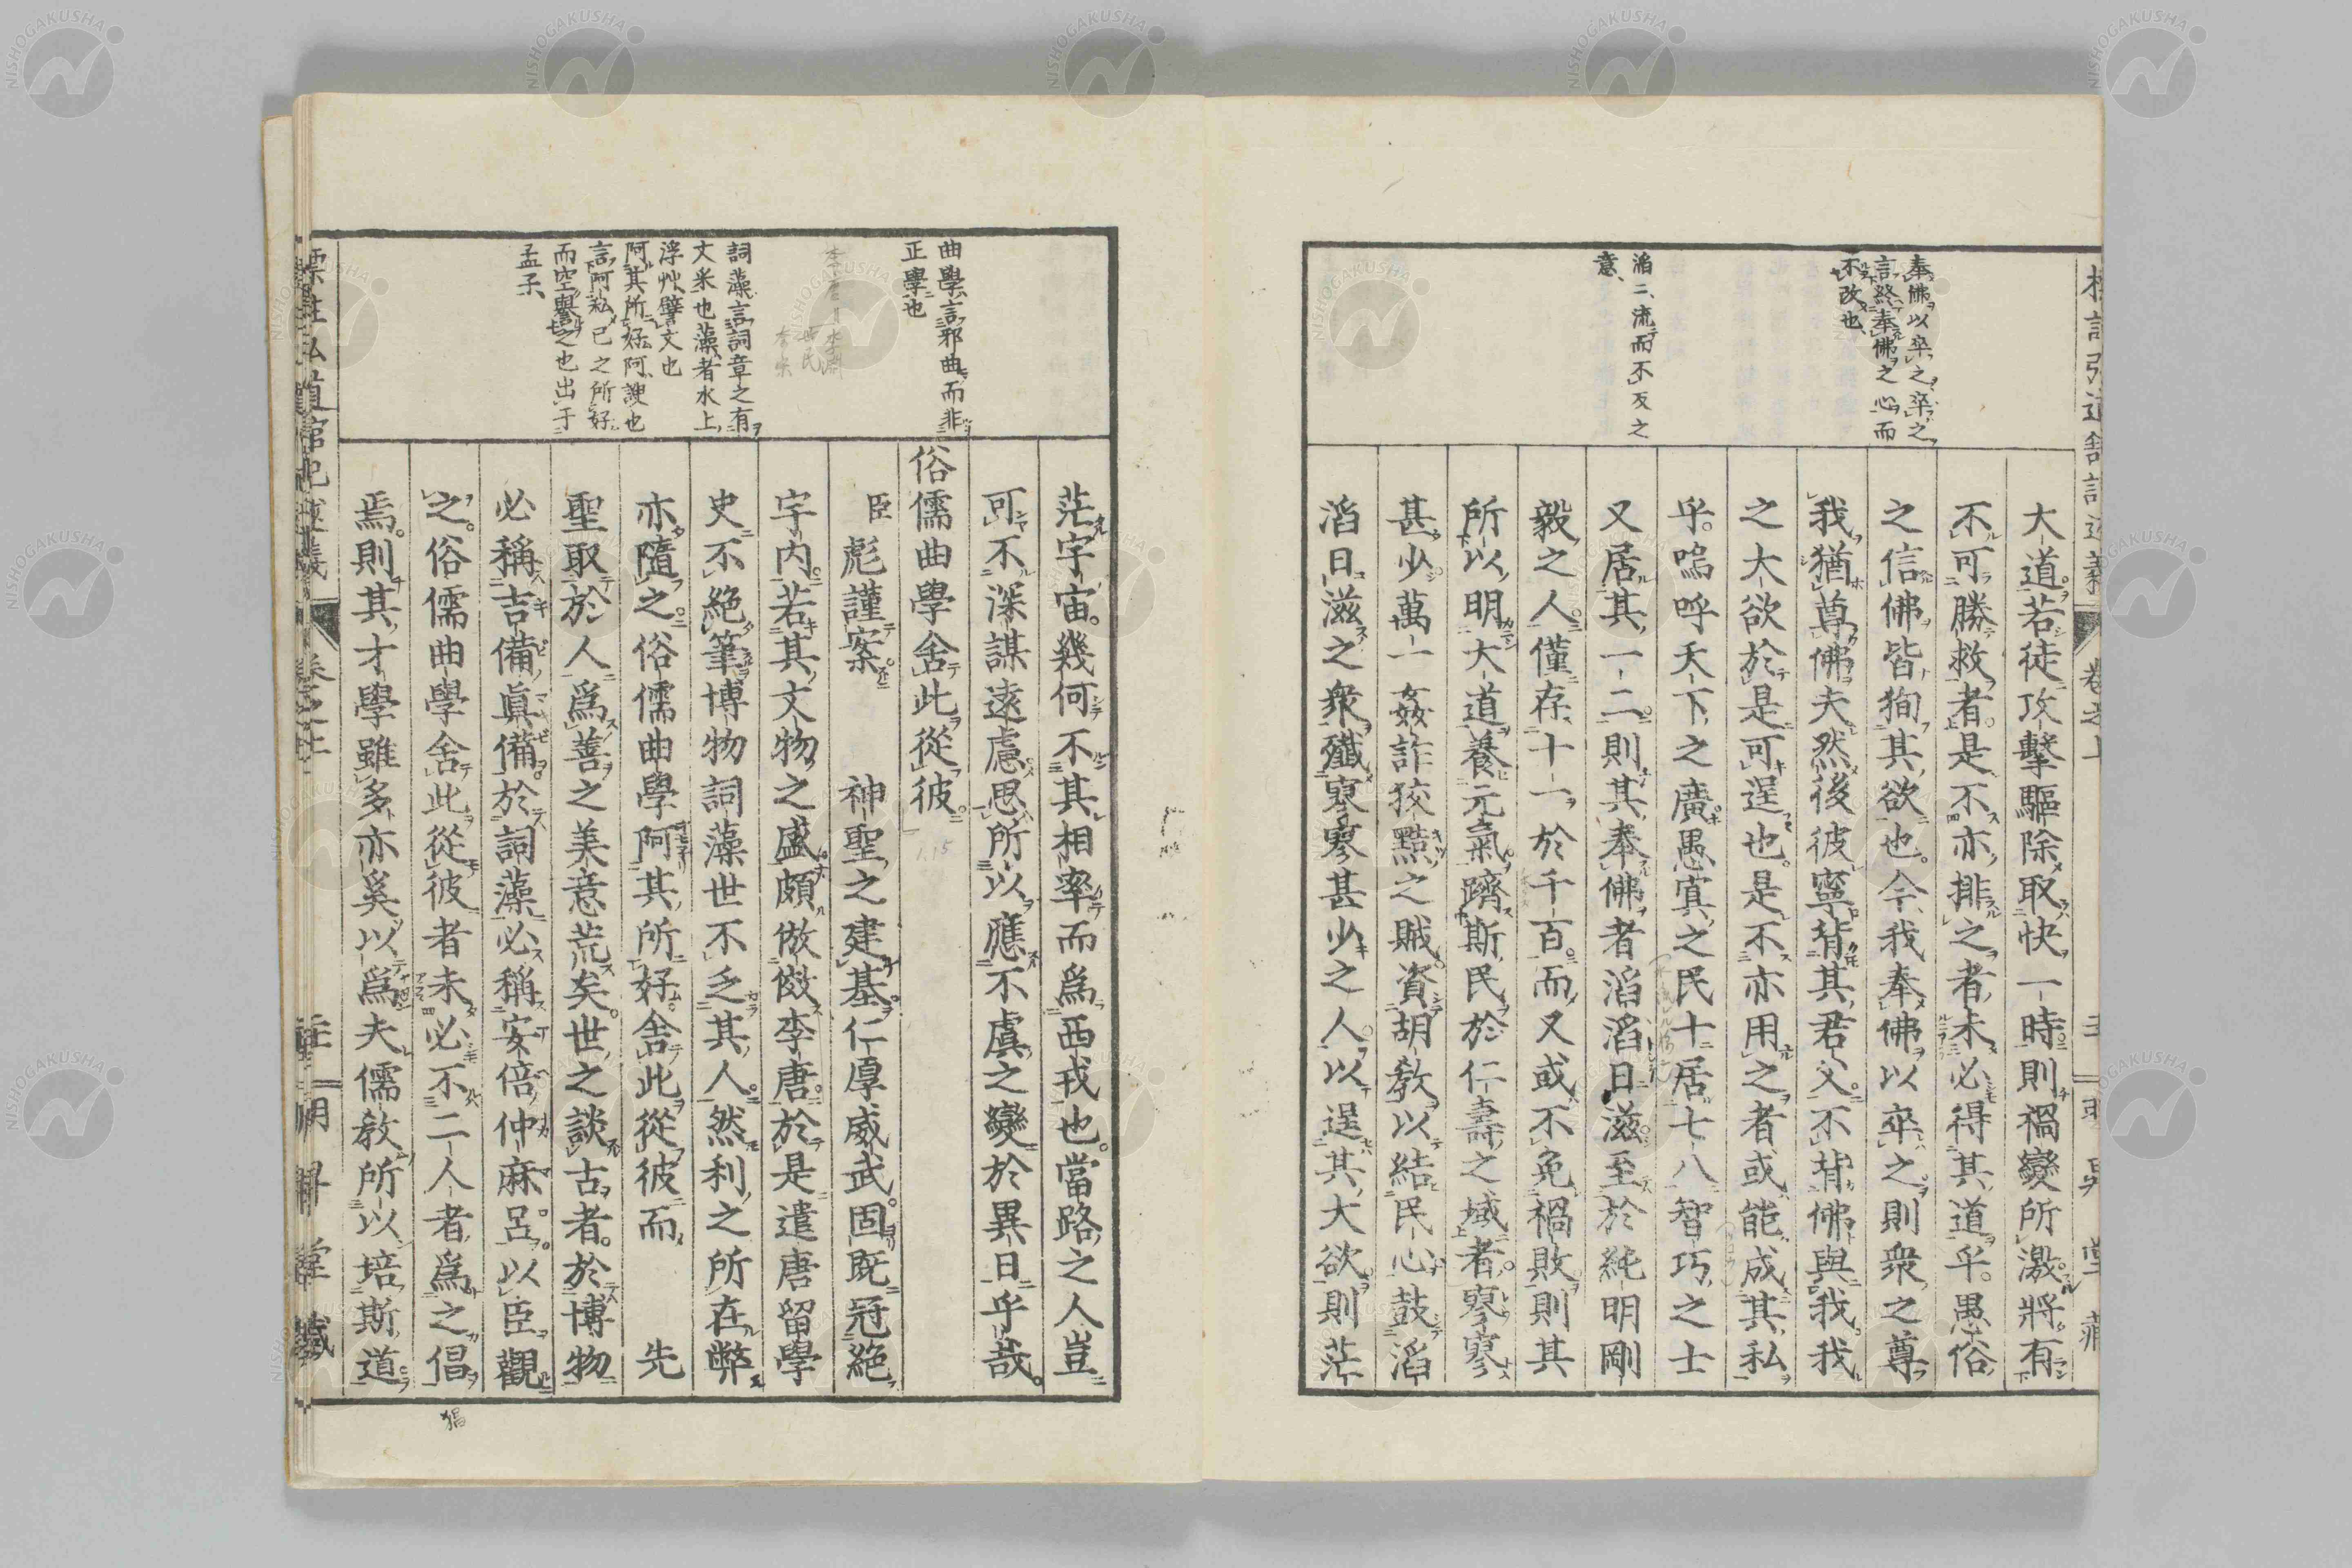 奉佛以卒之卒之
言終奉佛之心而
不改也
滔二流而不反之
意
大道若徒攻擊驅除取快一時則禍變所激將有
不可勝救者是不亦排之者未必得其道乎愚俗
之信佛皆狥其欲也今我奉佛以卒之則衆之尊
我猶尊佛夫然後彼寧背其君父不背佛與我我
之大欲於是可逞也是不亦用之者或能成其私
乎嗚呼天下之廣愚寘之民十居七八智巧之士
又居其一二則其奉佛者滔滔日滋至於純明剛
毅之人僅存十一於千百而又或不免禍敗則其
所以明大道養元氣躋斯民於仁壽之域者寥寥
甚少萬一姦詐狡黠之賊資胡教以結民心鼓滔
滔日滋之衆殲寥寥甚少之人以逞其大欲則茫
曲學言邪曲而非
正學也
詞藻言詞章之有
文采也藻者水上
浮艸譬文也
阿其所好阿諛也
言阿私己之所好
而空譽之也出于
孟子
茫宇宙幾何不其相率而爲西戎也當路之人豈
可不深謀遠慮思所以應不虞之變於異日乎哉
俗儒曲學舍此從彼
臣彪謹案 神聖之建基仁厚威武固既冠絶
宇内若其文物之盛頗倣傚李唐於是遣唐留學
史不絶筆博物詞藻世不乏其人然利之所在弊
亦隨之俗儒曲學阿其所好舍此從彼而 先
聖取於人爲善之美意荒矣世之談古者於博物
必稱吉備眞備於詞藻必稱安倍仲麻呂以臣觀
之俗儒曲學舍此從彼者未必不二人者爲之倡
焉則其才學雖多亦奚以爲夫儒教所以培斯道
猖